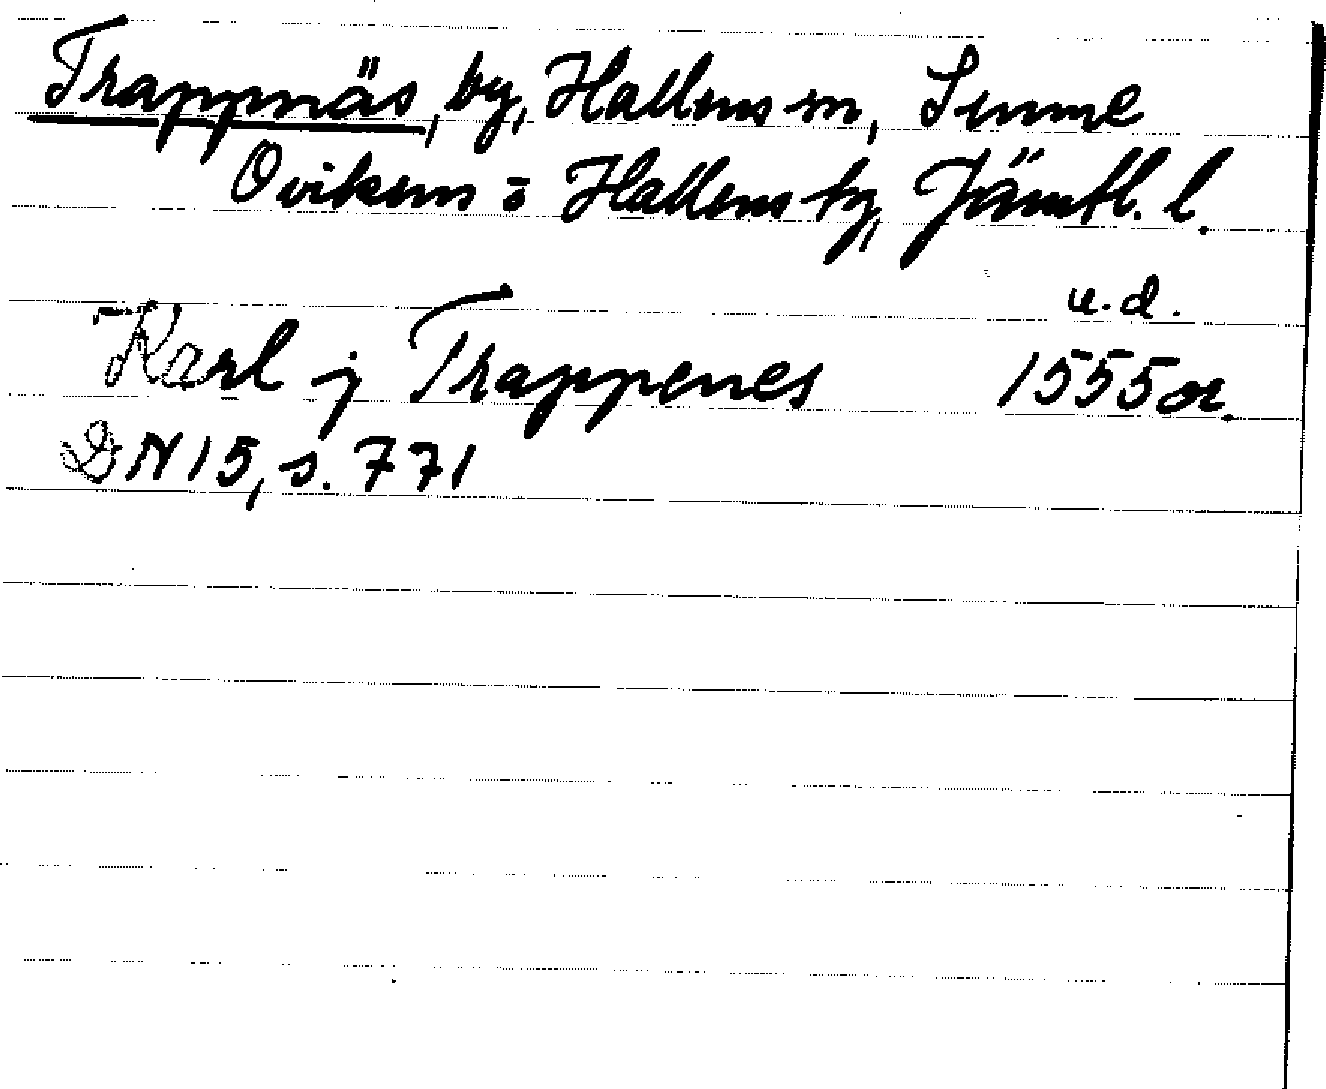 Trappnäs, by, Hallens sn, Sunne
Ovikens o Hallens tg, Jämtl. l.
u. d.
Karl j Trappenes 1555 or.
DN 15, s. 771